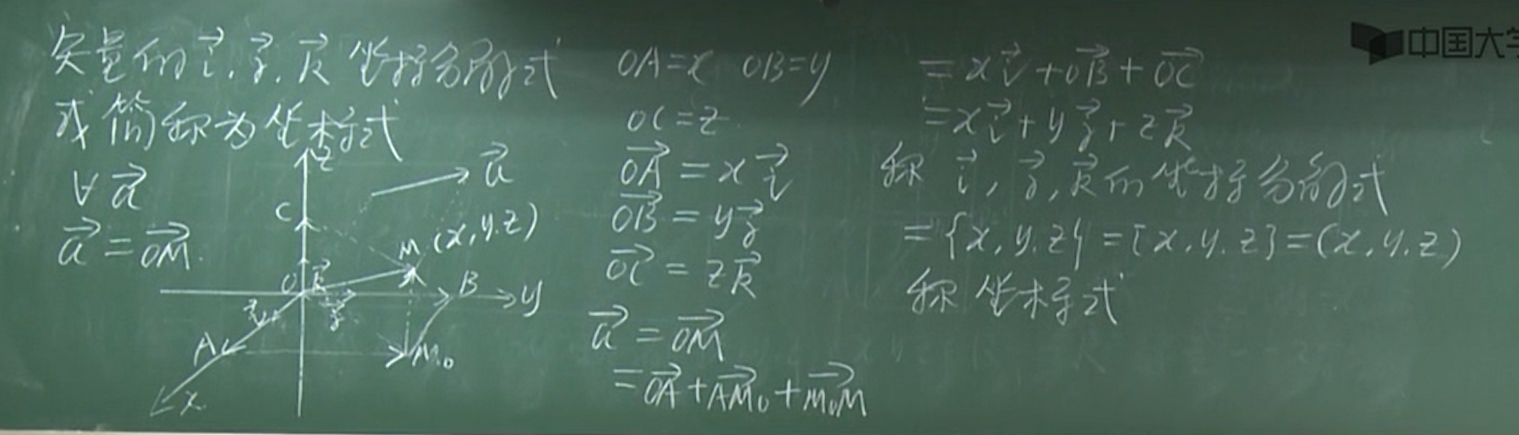 矢量的 $\vec{i}, \vec{j}, \vec{k}$ 坐标分解式
或简称为坐标式
$\forall \vec{a}$
$\vec{a} = \overrightarrow{OM}.$
z
$\vec{a}$
C
M (x, y, z)
O $\vec{k}$
B
y
$\vec{i}$
$\vec{j}$
A
M₀
x
OA=x OB=y
OC=z
$\overrightarrow{OA} = x\vec{i}$
$\overrightarrow{OB} = y\vec{j}$
$\overrightarrow{OC} = z\vec{k}$
$\vec{a} = \overrightarrow{OM}$
$= \overrightarrow{OA} + \overrightarrow{AM_0} + \overrightarrow{M_0M}$
$= x\vec{i} + \overrightarrow{OB} + \overrightarrow{OC}$
$= x\vec{i} + y\vec{j} + z\vec{k}$
称 $\vec{i}, \vec{j}, \vec{k}$ 的坐标分解式
= {x, y, z} = [x, y, z] = (x, y, z)
称坐标式
中国大学